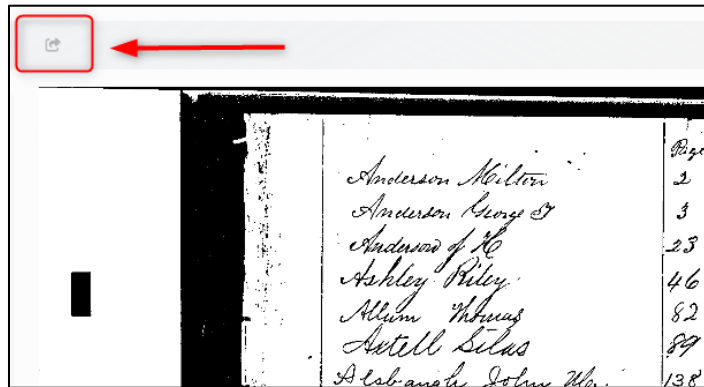 Page
Anderson Milton 2
Anderson George T 3
Anderson J H 23
Ashley Riley 46
Allum Thomas 82
Axtell Silas 89
Alsbaugh John M. 138